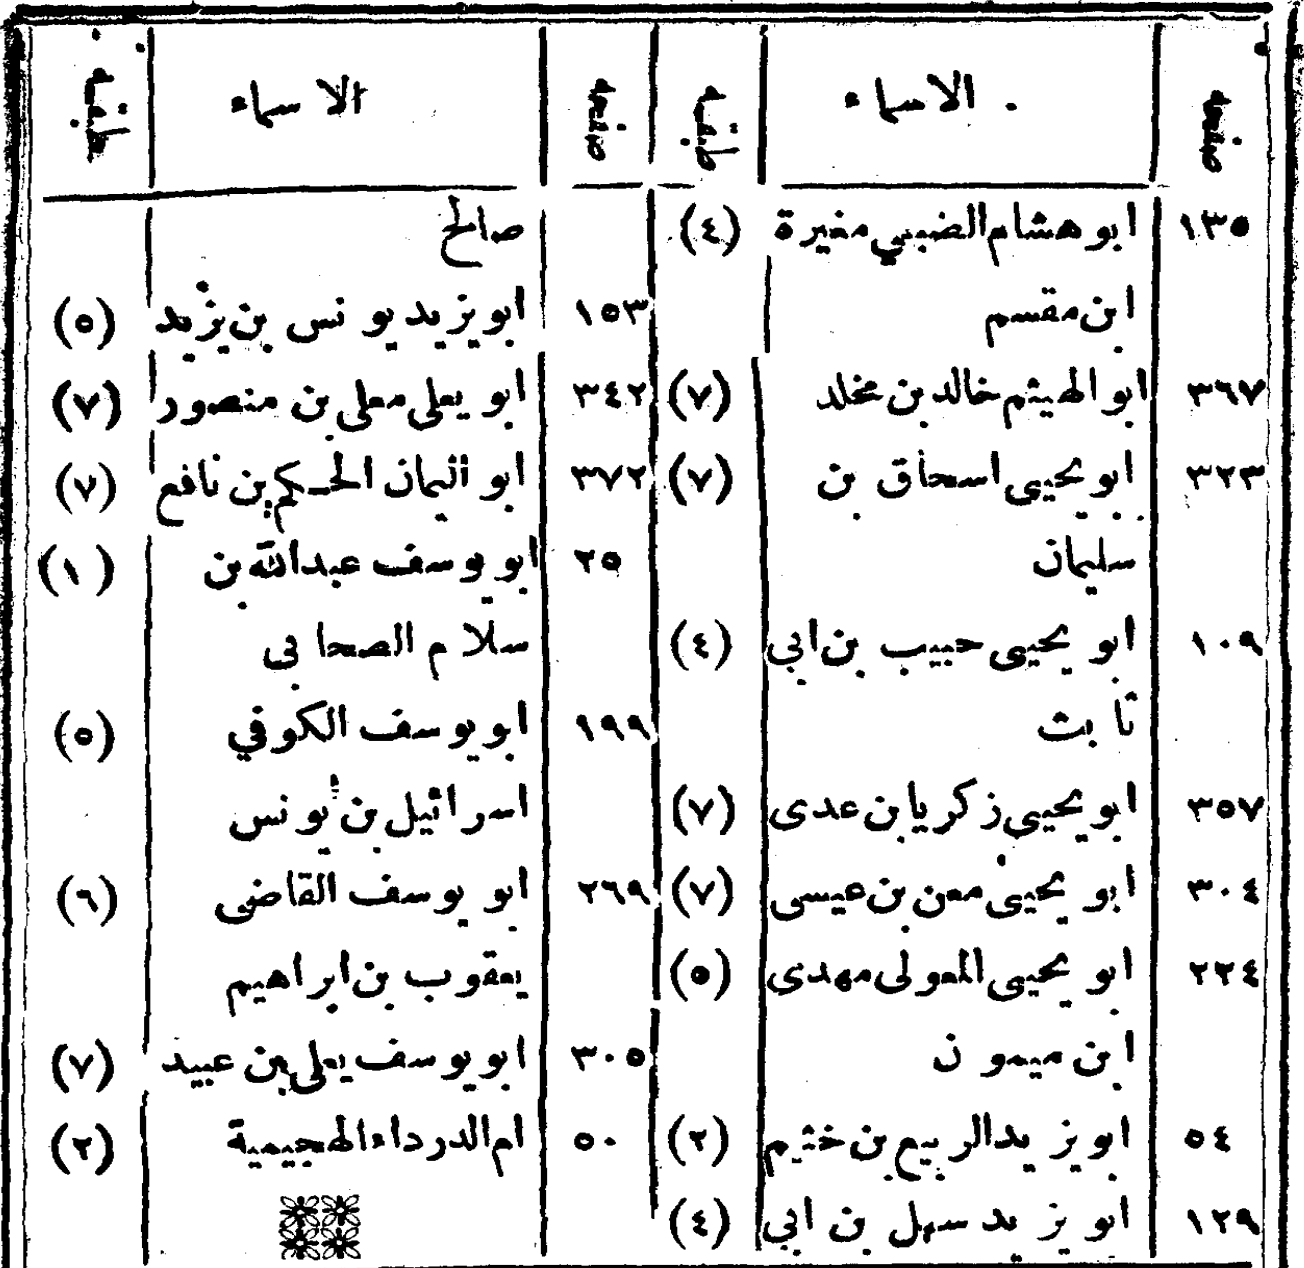 صفحه الاسماء طبقه
١٣٥ ابو هشام الضبي مغيرة (٤)
ابن مقسم
٣٦٧ ابو الهيثم خالد بن مخلد (٧)
٣٢٣ ابو يحيى اسحاق بن (٧)
سليمان
١٠٩ ابو يحيى حبيب بن ابي (٤)
ثابت
٣٥٧ ابو يحيى زكريا بن عدى (٧)
٣٠٤ ابو يحيى معن بن عيسى (٧)
٢٢٤ ابو يحيى المعولى مهدى (٥)
ابن ميمون
٥٤ ابو يزيد الربيع بن خثيم (٢)
١٢٩ ابو يزيد سهل بن ابي (٤)
صفحه الاسماء طبقه
صالح
١٥٣ ابو يزيد يونس بن يزيد (٥)
٣٤٢ ابو يعلى معلى بن منصور (٧)
٣٧٢ ابو اليمان الحكم بن نافع (٧)
٢٥ ابو يوسف عبدالله بن (١)
سلام الصحابى
١٩٩ ابو يوسف الكوفي (٥)
اسرائيل بن يونس
٢٦٩ ابو يوسف القاضى (٦)
يعقوب بن ابراهيم
٣٠٥ ابو يوسف يعلى بن عبيد (٧)
٥٠ ام الدرداء الهجيمية (٢)